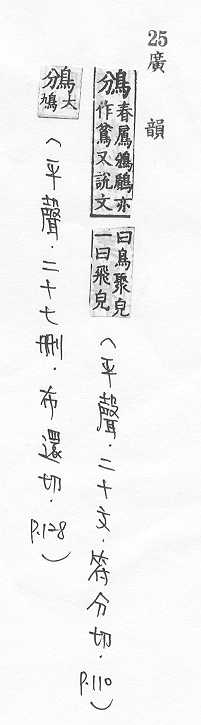 25廣韻
鳻
春鳸鳻鶞亦
作又說文
曰鳥聚皃
一曰飛皃
(平聲.二十文.符分切.P.110)
鳻
大
鳩
(平聲.二十七刪.布還切.P.128)